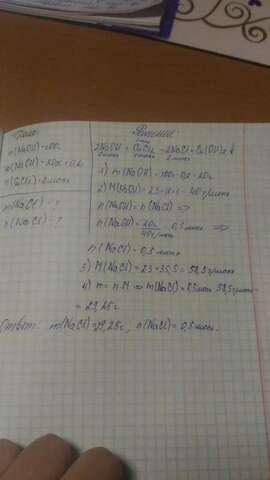 Дано:
m(NaOH) = 100г
ω(NaOH) = 20% = 0,2
n(CuCl2) = 2 моль
m(NaCl) - ?
n(NaCl) - ?
Решение:
2NaOH + CuCl2 = 2NaCl + Cu(OH)2↓
2 моль 2 моль
1) m(NaOH) = 100 · 0,2 = 20г
2) M(NaOH) = 23+16+1 = 40 г/моль
n(NaOH) = n(NaCl) =>
n(NaOH) = 20г / 40г/моль = 0,5 моль =>
n(NaCl) = 0,5 моль
3) M(NaCl) = 23+35,5 = 58,5 г/моль
4) m = n·M => m(NaCl) = 0,5 моль · 58,5 г/моль =
= 29,25г
Ответ: m(NaCl) = 29,25г, n(NaCl) = 0,5 моль.